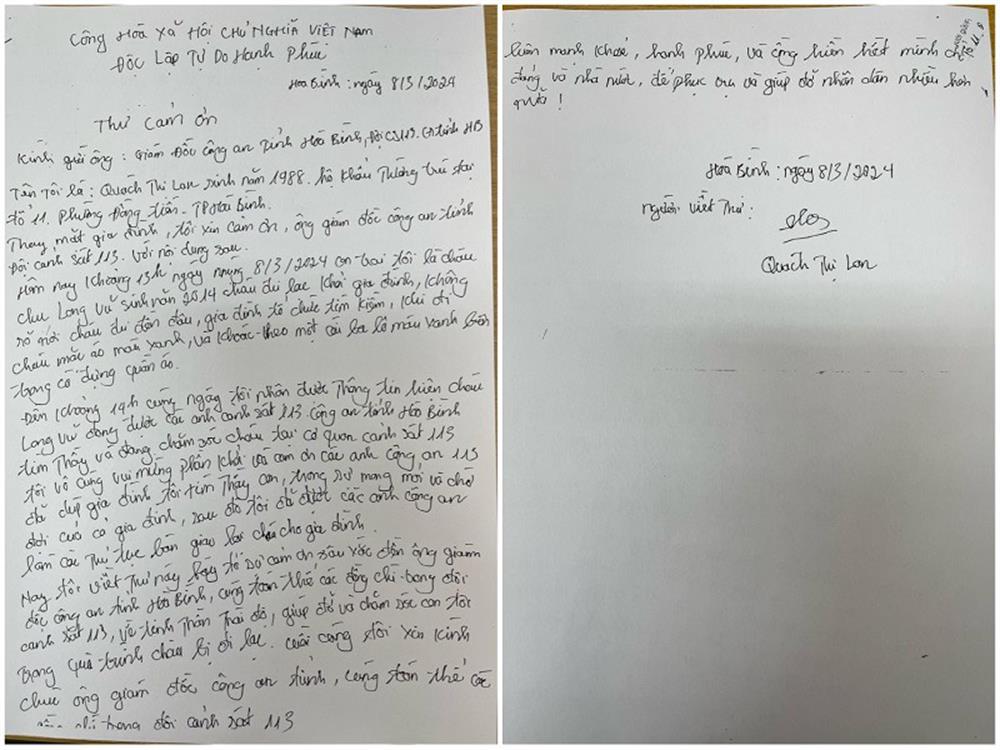 CÔNG HÒA XÃ HỘI CHỦ NGHĨA VIỆT NAM
ĐỘC LẬP TỰ DO HẠNH PHÚC
HOÀ BÌNH : ngày 8/3/2024
THƯ CẢM ƠN
Kính gửi ông : Giám Đốc công an Tỉnh Hoà Bình, Đội CS113. CA tỉnh HB
Tên Tôi là : Quách Thị Lan sinh năm 1988. hộ khẩu Thường trú tại
tổ 11. Phường Đồng tiến - TP Hoà Bình.
Thay mặt gia đình, tôi xin cảm ơn, ông giám đốc công an tỉnh
Đội cảnh sát 113. với nội dung sau.
Hôm nay khoảng 13h ngày 8/3/2024 con trai tôi là cháu
Chu Long Vũ sinh năm 2014 cháu đi lạc khỏi gia đình, không
rõ nơi cháu đi đến đâu, gia đình tổ chức tìm kiếm, khi đi
cháu mặc áo màu xanh, và khoác theo một cái ba lô màu xanh bên
trong có đựng quần áo.
Đến khoảng 14h cùng ngày tôi nhận được Thông tin hiện cháu
Long Vũ đang được các anh cảnh sát 113 công an tỉnh Hoà Bình
tìm Thấy và đang chăm sóc cháu tại cơ quan cảnh sát 113
tôi vô cùng vui mừng phấn khởi và cảm ơn các anh công an 113
đã giúp gia đình tôi tìm Thấy con, trong sự mong mỏi và chờ
đợi của cả gia đình, sau đó tôi đã được các anh công an
làm các Thủ tục bàn giao lại cháu cho gia đình.
Nay tôi viết Thư này bày tỏ sự cảm ơn sâu sắc đến ông giám
đốc công an tỉnh Hoà Bình, cùng toàn thể các đồng chí trong đội
cảnh sát 113, về tinh Thần Thái độ, giúp đỡ và chăm sóc con tôi
trong quá trình cháu bị đi lạc. cuối cùng tôi xin kính
chúc ông giám đốc công an tỉnh, cùng toàn thể các
chí trong đội cảnh sát 113
luôn mạnh khoẻ, hạnh phúc, và cống hiến hết mình cho
đảng và nhà nước, để phục vụ và giúp đỡ nhân dân nhiều hơn
nữa !
HOÀ BÌNH : ngày 8/3/2024
Người viết Thư :
Quách Thị Lan